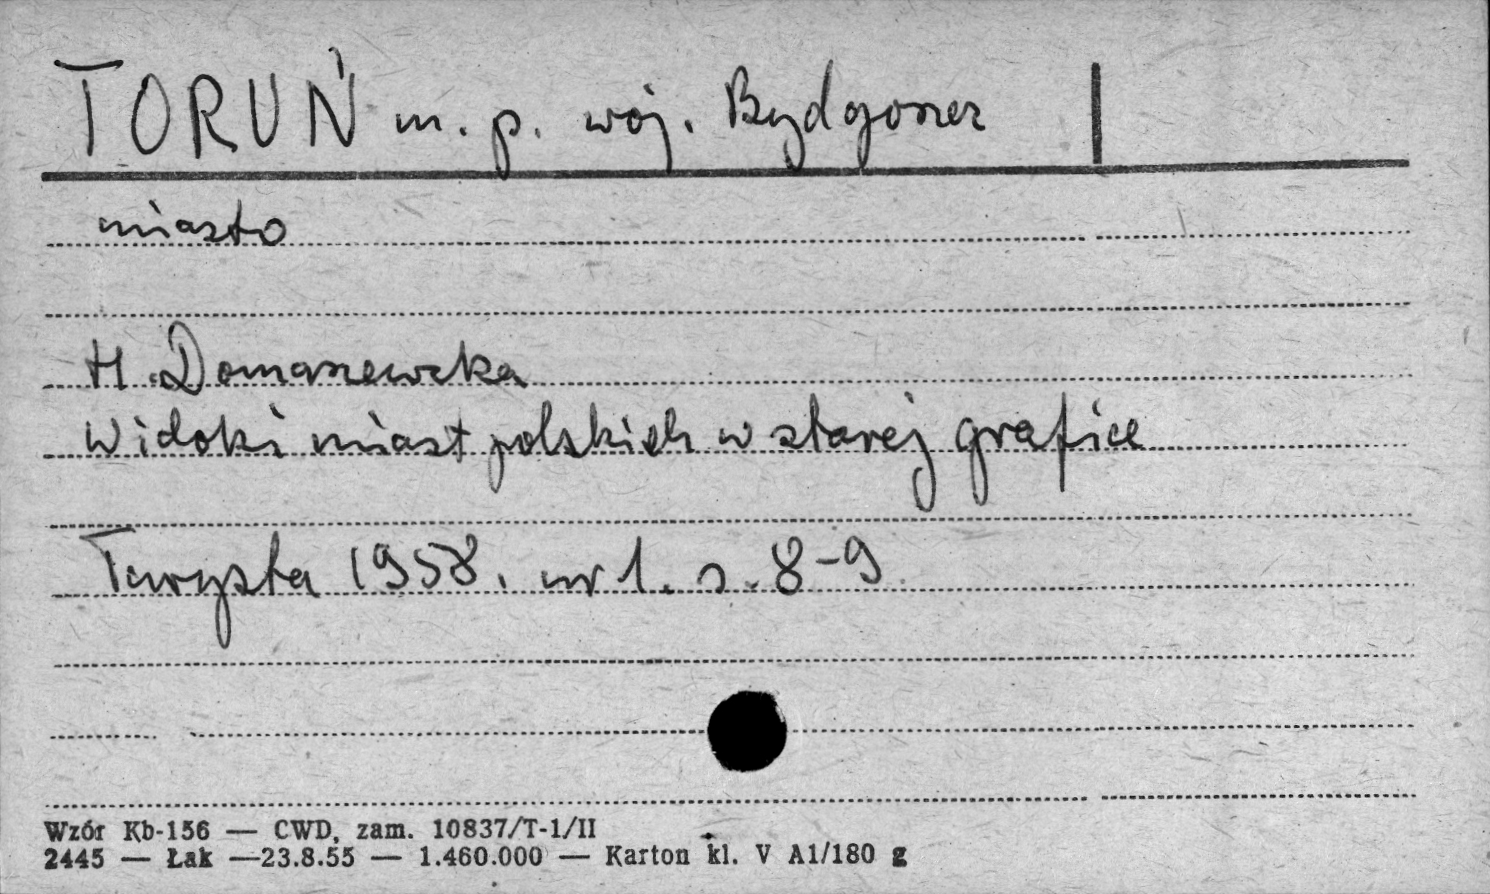 TORUŃ m. p. woj. Bydgoszcz
miasto
H. Domaszewska
Widoki miast polskich w starej grafice
Turysta 1958. nr 1. s. 8-9
Wzór Kb-156 — CWD, zam. 10837/T-1/II
2445 — Łak —23.8.55 — 1.460.000 — Karton kl. V A1/180 g